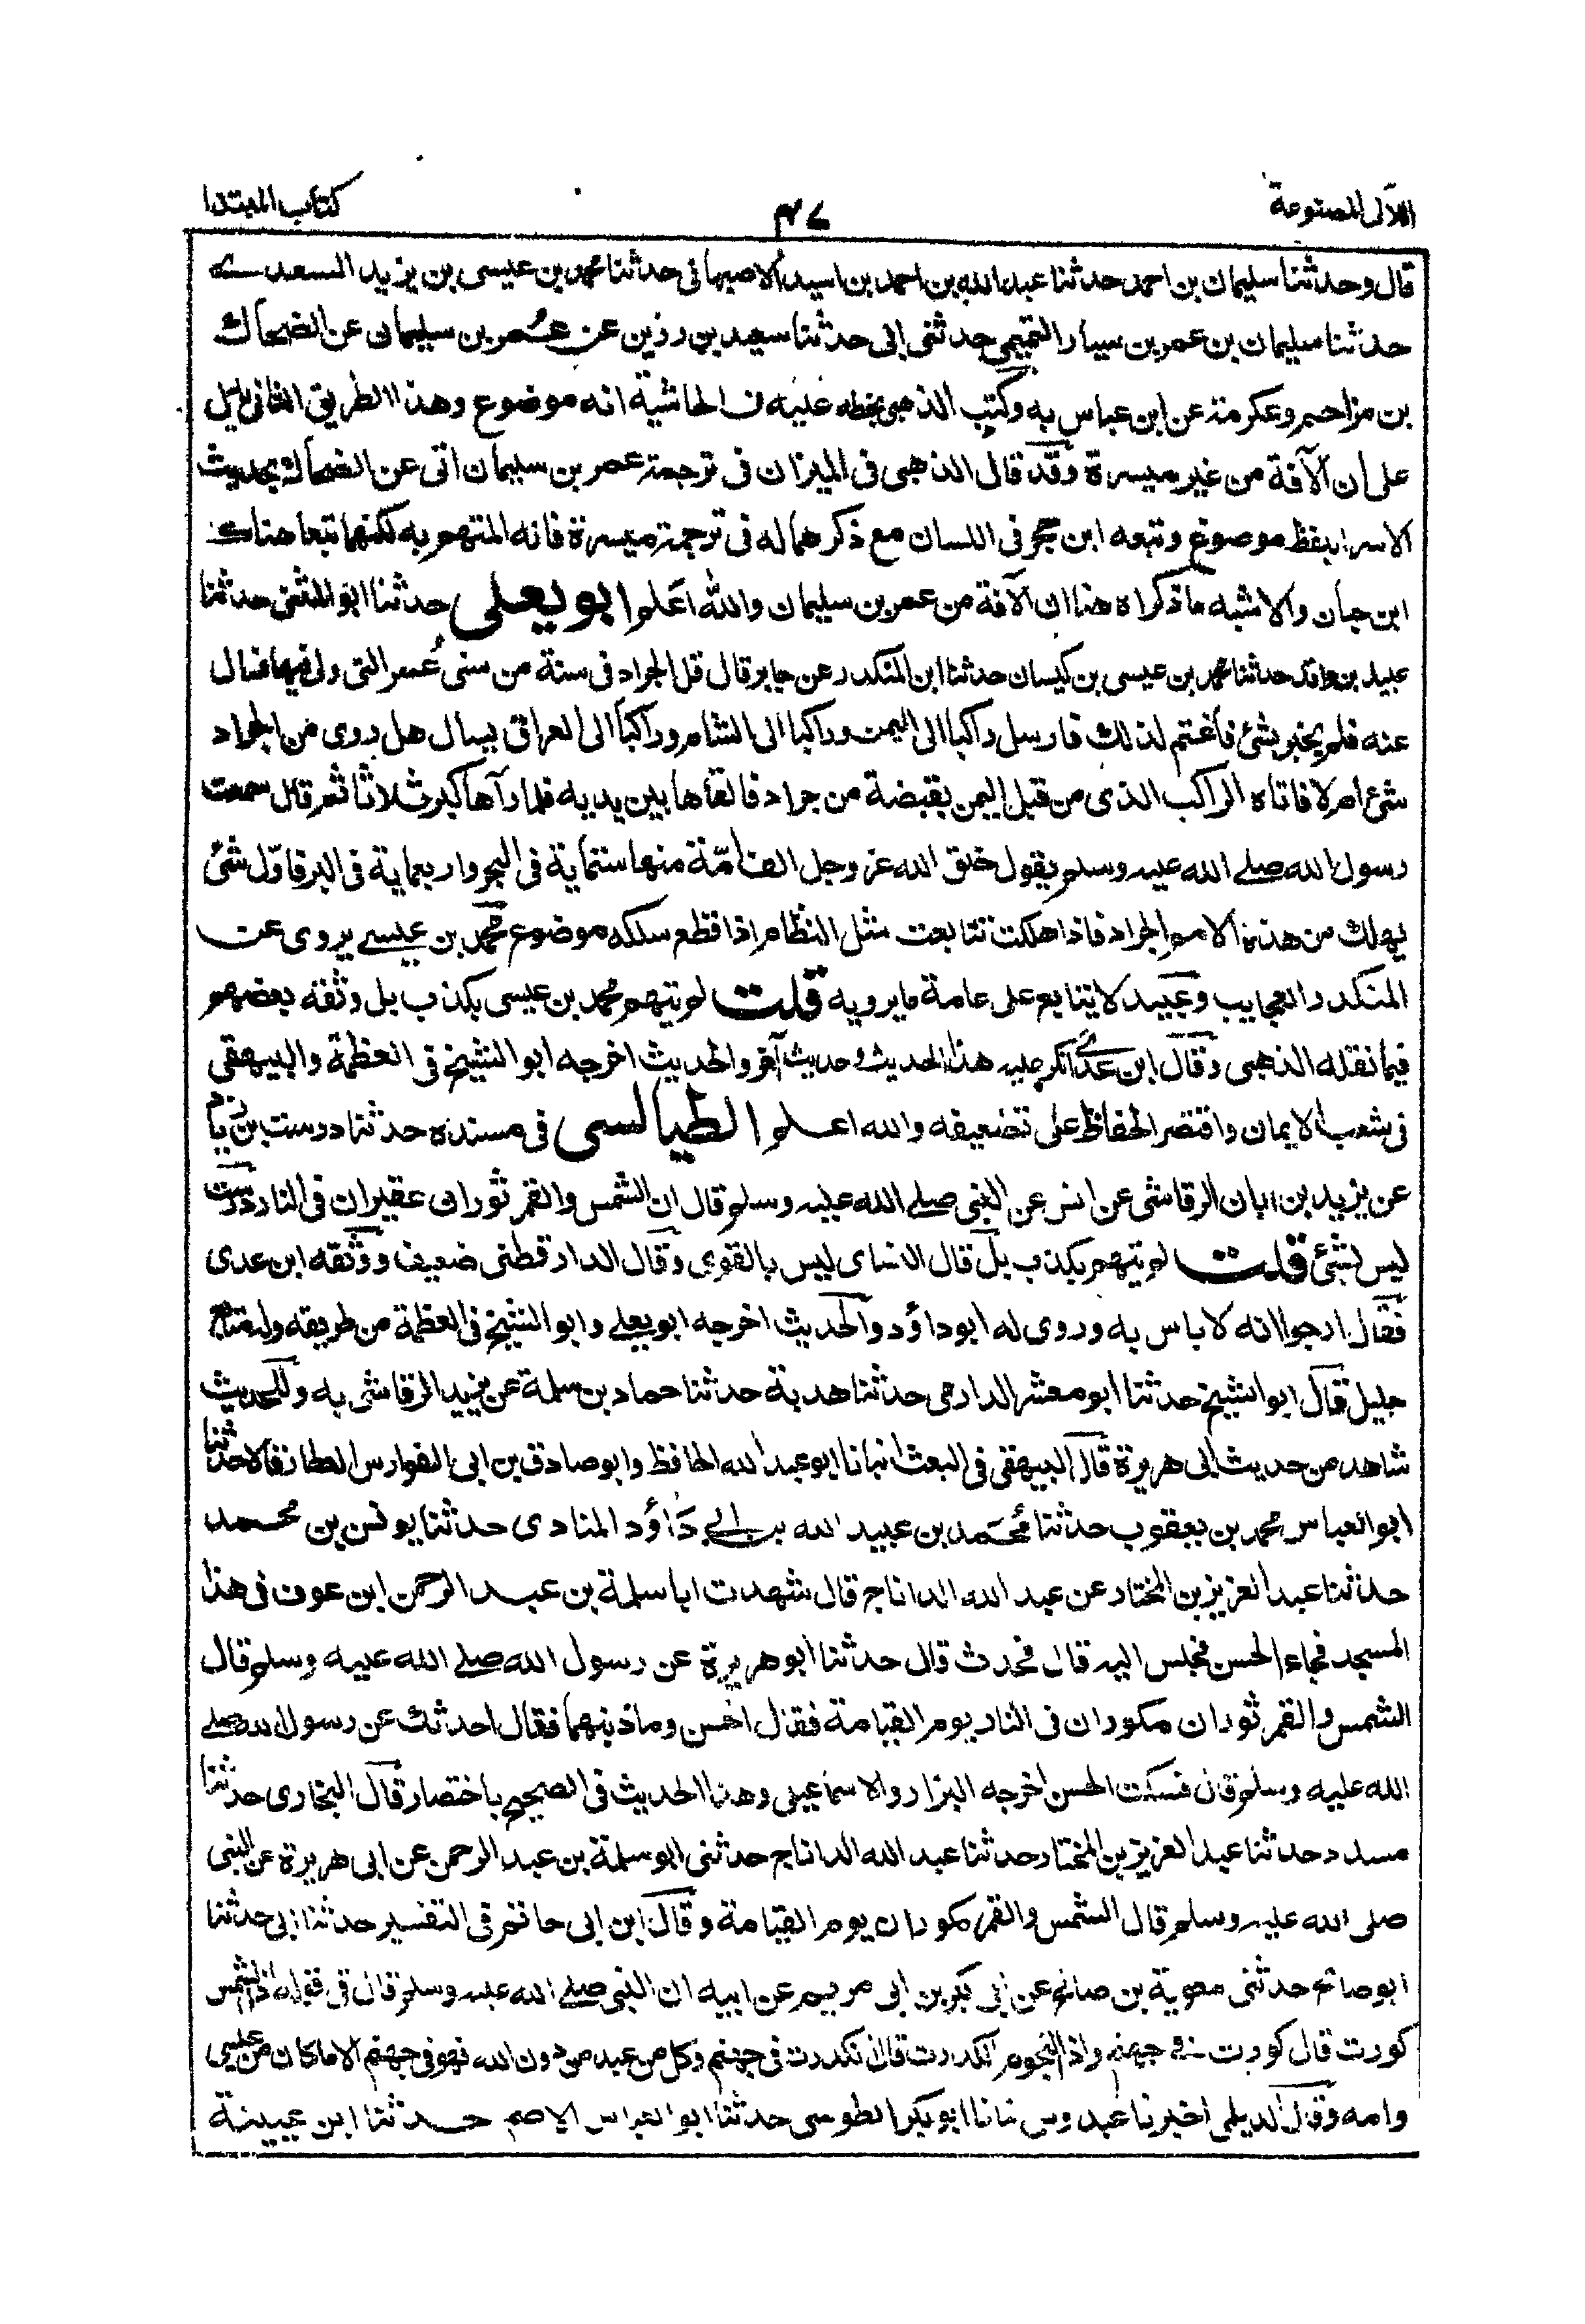 اللآلى المصنوعة
٤٧
كتاب المبتدا
قال وحدثنا سليمان بن احمد حدثنا عبد الله بن احمد بن اسيد الاصبهانى حدثنا محمد بن عيسى بن يزيد السعدى
حدثنا سليمان بن عمر بن سيار التميمى حدثنى ابى حدثنا سعيد بن رزين عن عمر بن سليمان عن الضحاك
بن مزاحم وعكرمة عن ابن عباس به وكتب الذهبى بخطه عليه فى الحاشية انه موضوع وهذا الطريق الثانى يدل
على ان الآفة من غير ميسرة وقد قال الذهبى فى الميزان فى ترجمة عمر بن سليمان اتى عن الضحاك بحديث
الاسراء بلفظ موضوع وتبعه ابن حجر فى اللسان مع ذكرهما له فى ترجمة ميسرة فانه المتهم به لكنهما تبعا هناك
ابن حبان والاشبه ما ذكراه هنا ان الآفة من عمر بن سليمان والله اعلم ابو يعلى حدثنا ابو المثنى حدثنا
عبيد بن واقد حدثنا محمد بن عيسى بن كيسان حدثنا ابن المنكدر عن جابر قال قل الجراد فى سنة من سنى عمر التى ولى فيها فسال
عنه فلم يخبر بشئ فاغتم لذلك فارسل راكبا الى اليمن وراكبا الى الشام وراكبا الى العراق يسال هل روى من الجراد
شئ ام لا فاتاه الراكب الذى من قبل اليمن بقبضة من جراد فالقاها بين يديه فلما رآها كبر ثلاثا ثم قال سمعت
رسول الله صلى الله عليه وسلم يقول خلق الله عز وجل الف امّة منها ستماية فى البحر واربعماية فى البر فاوّل شئ
يهلك من هذه الامم الجراد فاذا هلكت تتابعت مثل النظام اذا قطع سلكه موضوع محمد بن عيسى يروى عن
المنكدر العجايب وعبيد لا يتابع على عامة ما يرويه قلت لم يتهم محمد بن عيسى بكذب بل وثقه بعضهم
فيما نقله الذهبى وقال ابن عدى انكر عليه هذا الحديث وحديث آخر والحديث اخرجه ابو الشيخ فى العظمة والبيهقى
فى شعب الايمان واقتصر الحفاظ على تضعيفه والله اعلم الطيالسى فى مسنده حدثنا درست بن زياد
عن يزيد بن ابان الرقاشى عن انس عن النبى صلى الله عليه وسلم قال ان الشمس والقمر ثوران عقيران فى النار درست
ليس بشئ قلت لم يتهم بكذب بل قال النساى ليس بالقوى وقال الدارقطنى ضعيف ووثقه ابن عدى
فقال ارجوا انه لا باس به وروى له ابو داؤد والحديث اخرجه ابو يعلى وابو الشيخ فى العظمة من طريقه وله متابع
جليل قال ابو الشيخ حدثنا ابو معشر الدارمى حدثنا هدبة حدثنا حماد بن سلمة عن يزيد الرقاشى به وللحديث
شاهد من حديث ابى هريرة قال البيهقى فى البعث انبانا ابو عبد الله الحافظ وابو صادق بن ابى الفوارس العطار قالا حدثنا
ابو العباس محمد بن يعقوب حدثنا محمد بن عبيد الله بن ابى داؤد المنادى حدثنا يونس بن محمد
حدثنا عبد العزيز بن المختار عن عبد الله الداناج قال شهدت ابا سلمة بن عبد الرحمن ابن عوف فى هذا
المسجد فجاء الحسن فجلس اليه قال فحدث قال حدثنا ابو هريرة عن رسول الله صلى الله عليه وسلم قال
الشمس والقمر ثوران مكوران فى النار يوم القيامة فقال الحسن وما ذنبهما فقال احدثك عن رسول الله صلى
الله عليه وسلم قال فسكت الحسن اخرجه البزار والاسماعيلى وهذا الحديث فى الصحيح باختصار قال البخارى حدثنا
مسدد حدثنا عبد العزيز بن المختار حدثنا عبد الله الداناج حدثنى ابو سلمة بن عبد الرحمن عن ابى هريرة عن النبى
صلى الله عليه وسلم قال الشمس والقمر مكوران يوم القيامة وقال ابن ابى حاتم فى التفسير حدثنا ابى حدثنا
ابو صالح حدثنى معوية بن صالح عن ابى بكر بن ابى مريم عن ابيه ان النبى صلى الله عليه وسلم قال فى قوله اذا الشمس
كورت قال كورت فى جهنم واذا النجوم انكدرت قال انكدرت فى جهنم وكل من عبد من دون الله فهو فى جهنم الا ما كان من عيسى
وامه وقال الديلمى اخبرنا عبدوس انبانا ابو بكر الطوسى حدثنا ابو العباس الاصم حدثنا ابن عيينة